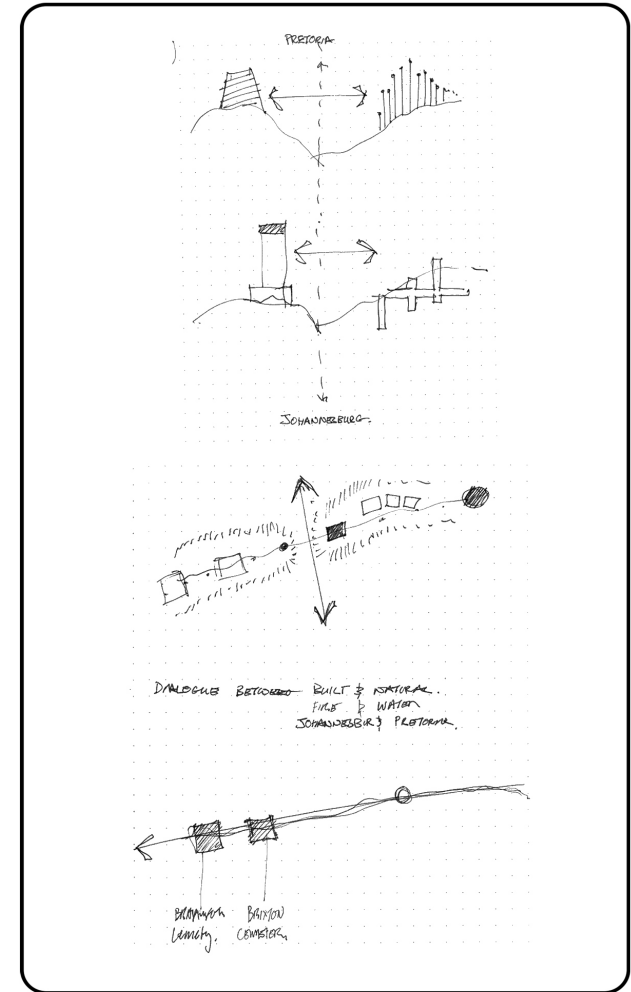 PRETORIA
JOHANNESBURG.
DIALOGUE BETWEEN BUILT & NATURAL.
FIRE & WATER
JOHANNESBUR & PRETORIA.
BRIXTON
CEMETERY.
cemetery.